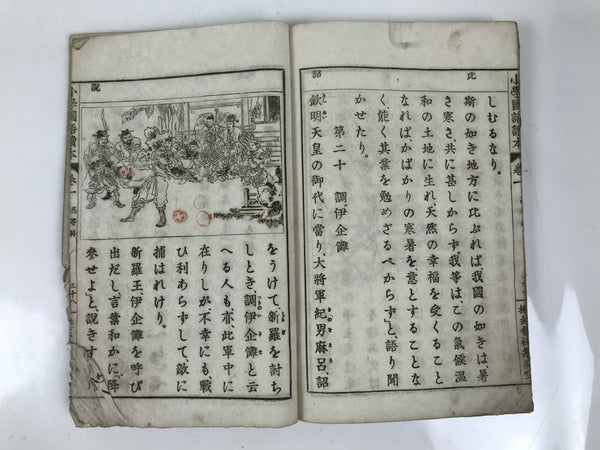 小學國語讀本 卷一
比
しむるなり。
斯の如き地方に比ぶれば我國の如きは暑
さ寒さ、共に甚しからず。我等は、この氣候温
和の土地に生れ、天然の幸福を受くること
なれば、かばかりの寒暑を意とすることな
く、能く其業を勉めざるべからずと、語り聞
かせたり。
第二十 調伊企儺
詔
欽明天皇の御代に當り、大將軍紀男麻呂、詔
をうけて、新羅を討ち
しとき、調伊企儺と云
へる人も亦、此軍中に
在りしが不幸にも戰
ひ利あらずして、敵に
捕はれけり。
新羅王、伊企儺を呼び
出だし、言葉和かに、降
參せよと説きす
説
小學國語讀本 卷一